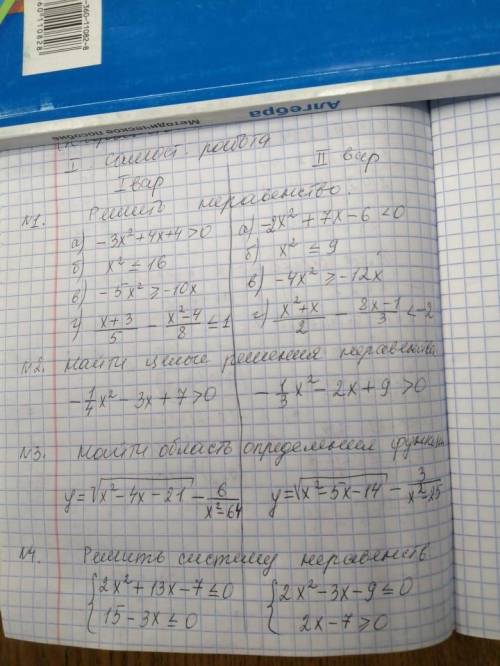 -360-11082-8
Алгебра
Методическое пособие
I самост. работа
I вар
II вар
№1. Решить неравенство:
а) -3x²+4x+4>0
а) -2x²+7x-6<0
б) x² ≤ 16
б) x² ≤ 9
в) -5x² ≥ -10x
в) -4x² ≥ -12x
г) (x+3)/5 - (x²-4)/8 ≤ 1
г) (x²+x)/2 - (8x-1)/3 < -2
№2. Найти целые решения неравенства
-1/4 x² - 3x + 7 > 0
-1/3 x² - 2x + 9 > 0
№3. Найти область определения функции
y = √(x²-4x-21) - 6/(x²-64)
y = √(x²-5x-14) - 3/(x²-25)
№4. Решить систему неравенств
{2x²+13x-7≤0
15-3x≤0
{2x²-3x-9≤0
2x-7>0